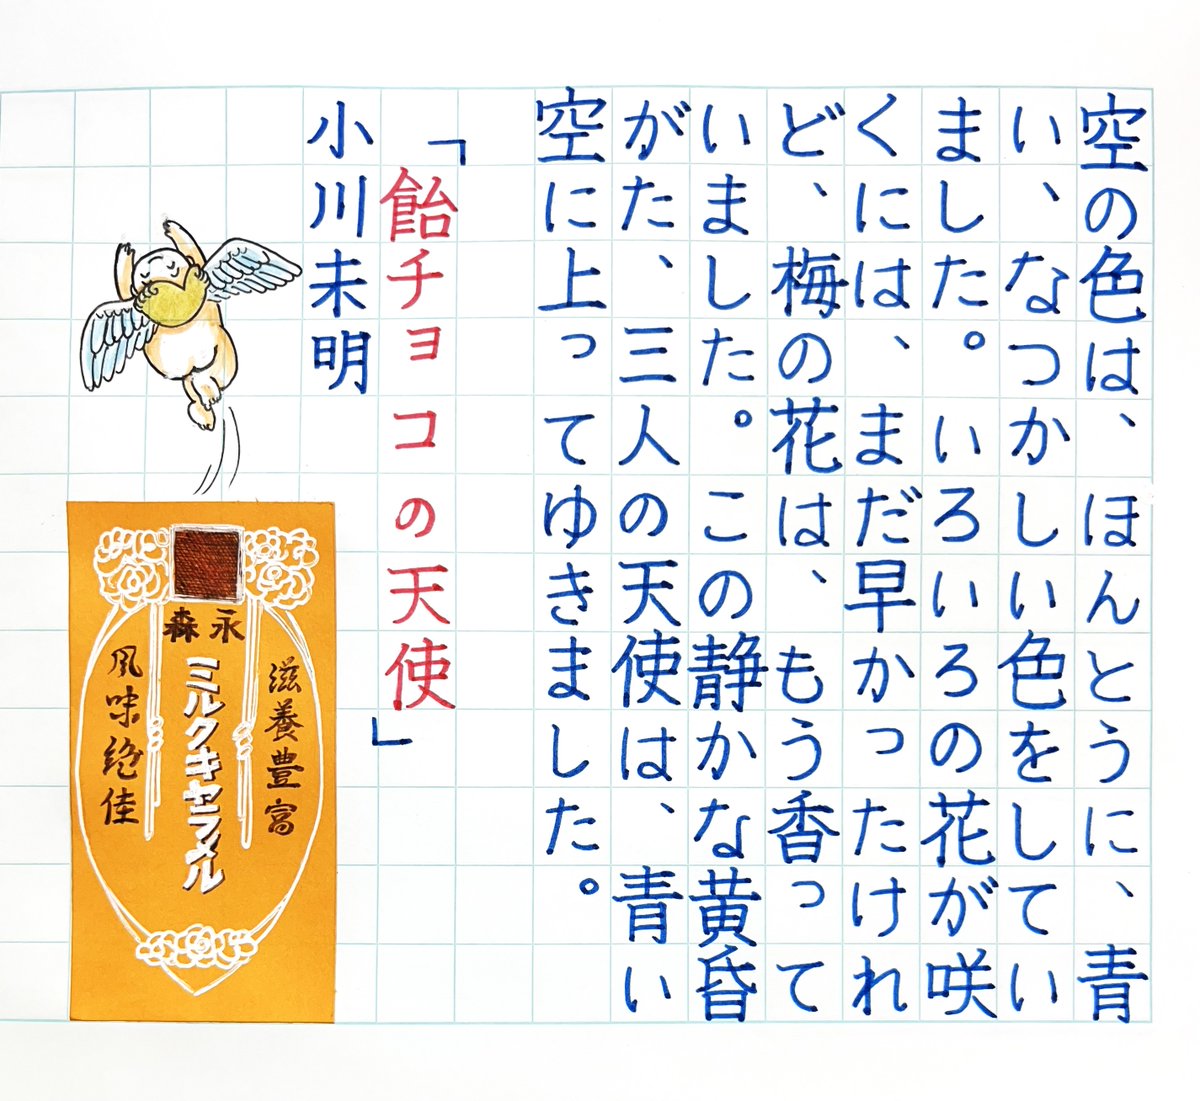 空の色は、ほんとうに、青
い、なつかしい色をしてい
ました。いろいろの花が咲
くには、まだ早かったけれ
ど、梅の花は、もう香って
いました。この静かな黄昏
がた、三人の天使は、青い
空に上ってゆきました。
「飴チョコの天使」
小川未明
滋養豊富
森永
ミルクキャラメル
風味絶佳